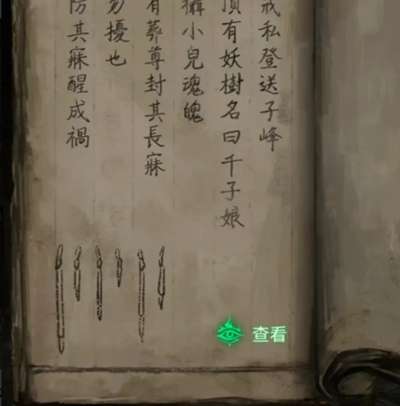 戒私登送子峰
頂有妖樹名曰千子娘
小兒魂魄
有葬尊封其長寐
勿擾也
防其寐醒成禍
查看